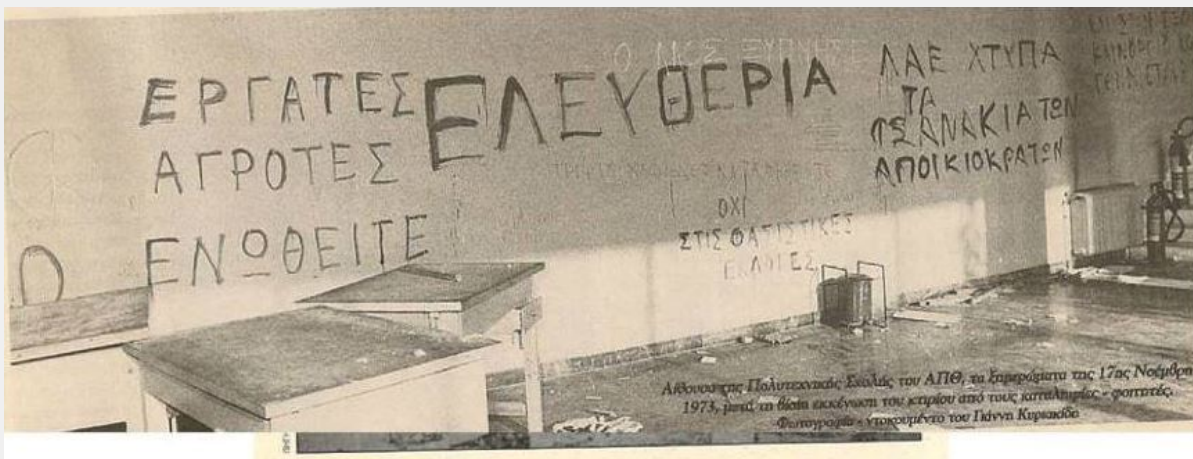 ΕΡΓΑΤΕΣ
ΑΓΡΟΤΕΣ
ΕΝΩΘΕΙΤΕ
ΕΛΕΥΘΕΡΙΑ
Ο
ΛΑΕ ΧΤΥΠΑ
ΤΑ
ΤΣΑΝΑΚΙΑ ΤΩΝ
ΑΠΟΙΚΙΟΚΡΑΤΩΝ
ΟΧΙ
ΣΤΙΣ ΦΑΤΙΣΤΙΚΕΣ
ΕΚΛΟΓΕΣ
Αίθουσα της Πολυτεχνικής Σχολής του ΑΠΘ, τα ξημερώματα της 17ης Νοέμβρη
1973, μετά τη βίαιη εκκένωση του κτιρίου από τους καταληψίες - φοιτητές.
Φωτογραφία - ντοκουμέντο του Γιάννη Κυριακίδη